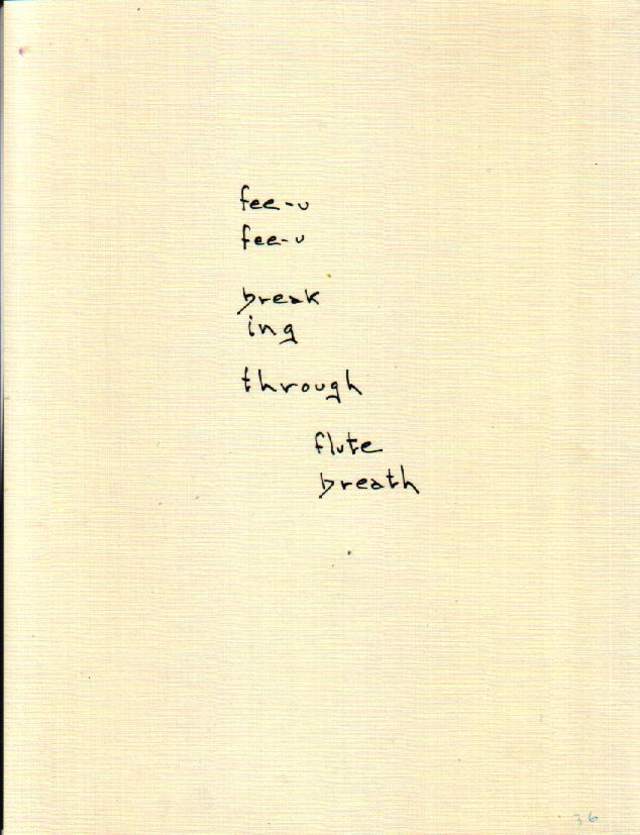 fee-u
fee-u
break
ing
through
flute
breath
36